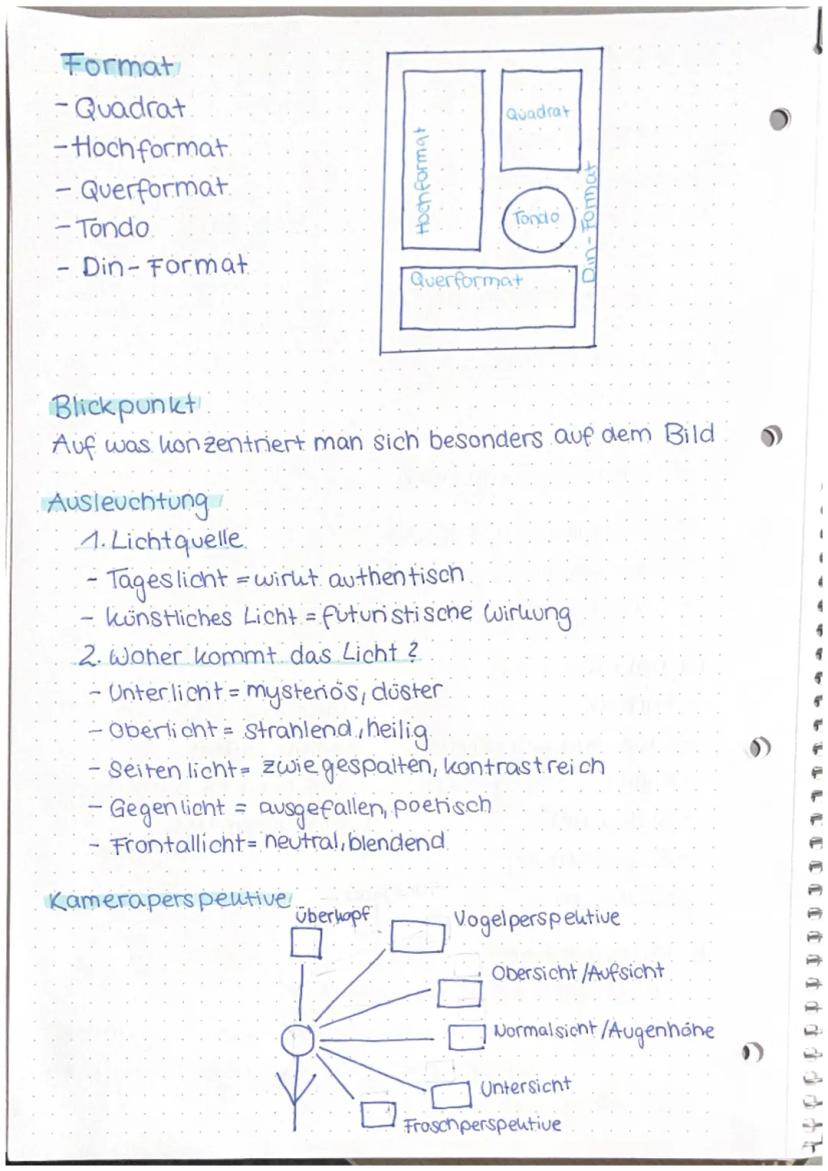 Format
- Quadrat
- Hochformat
- Querformat
- Tondo
- Din-Format
Hochformat
Quadrat
Tondo
Din-Format
Querformat
Blickpunkt
Auf was konzentriert man sich besonders auf dem Bild
Ausleuchtung
1. Lichtquelle
- Tageslicht = wirkt authentisch
- künstliches Licht = futuristische Wirkung
2. Woher kommt das Licht?
- Unterlicht = mysteriös, düster
- Oberlicht = strahlend, heilig
- Seitenlicht = zwiegespalten, kontrastreich
- Gegenlicht = ausgefallen, poetisch
- Frontallicht = neutral, blendend
Kameraperspektive
Überkopf
Vogelperspektive
Obersicht/Aufsicht
Normalsicht/Augenhöhe
Untersicht
Froschperspektive